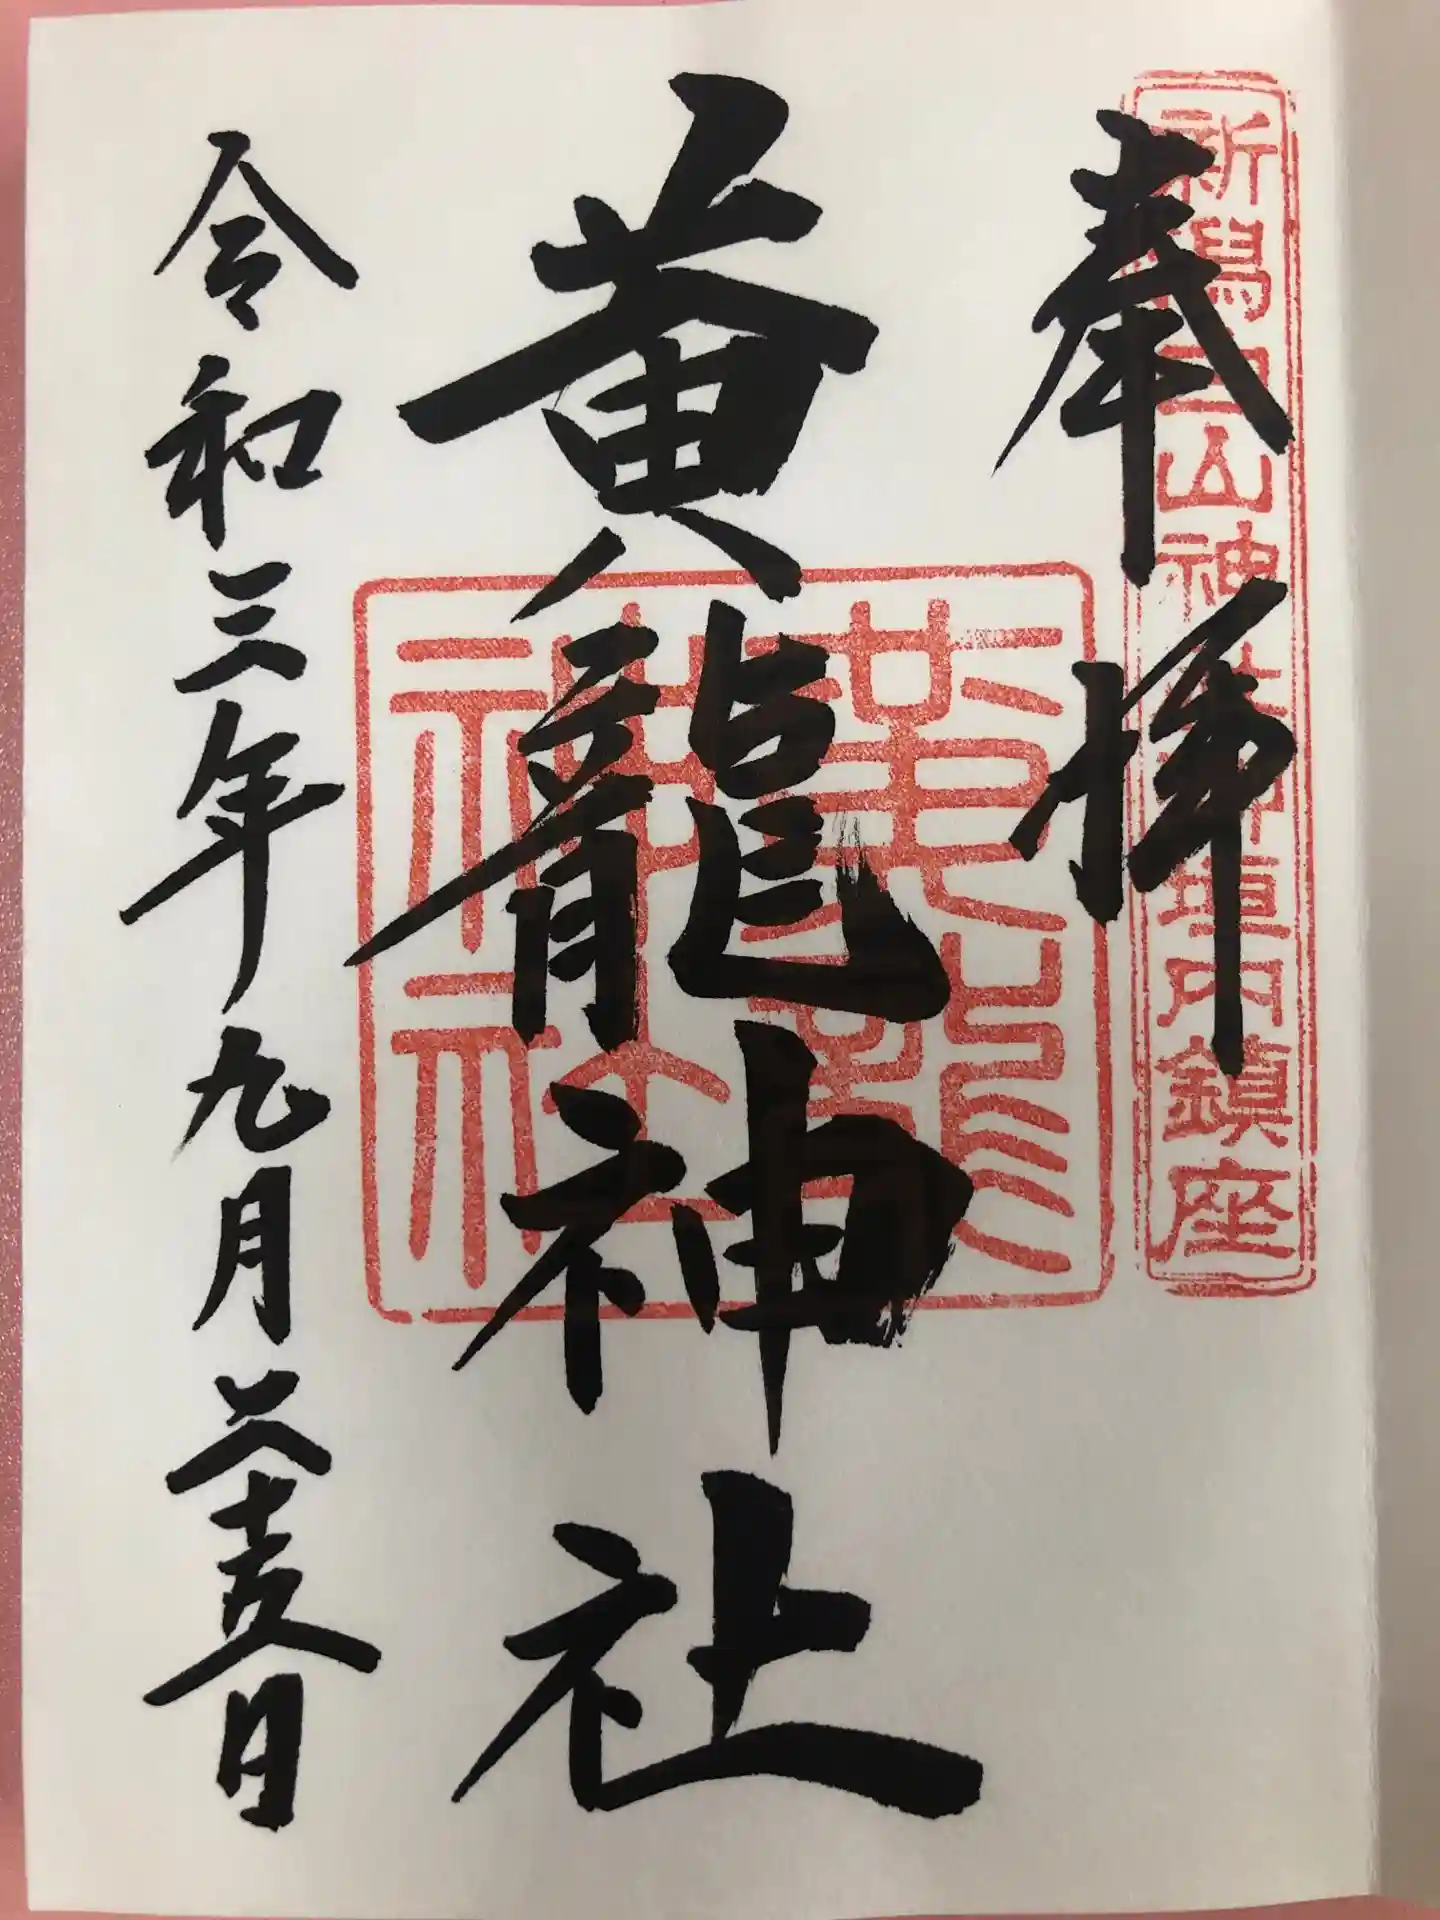 新潟白山神社垣内鎮座
奉拝
黄龍神社
黄龍神社
令和三年九月二十五日